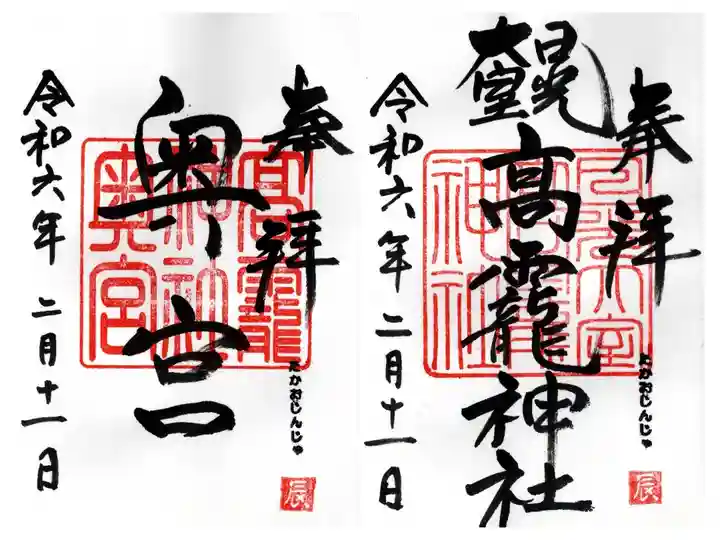 奉拝
日光
大室
高龗神社
たかおじんじゃ
令和六年 二月十一日
日光大室
高龗
神社
辰
奉拝
奥宮
たかおじんじゃ
令和六年 二月十一日
高龗
神社
奥宮
辰